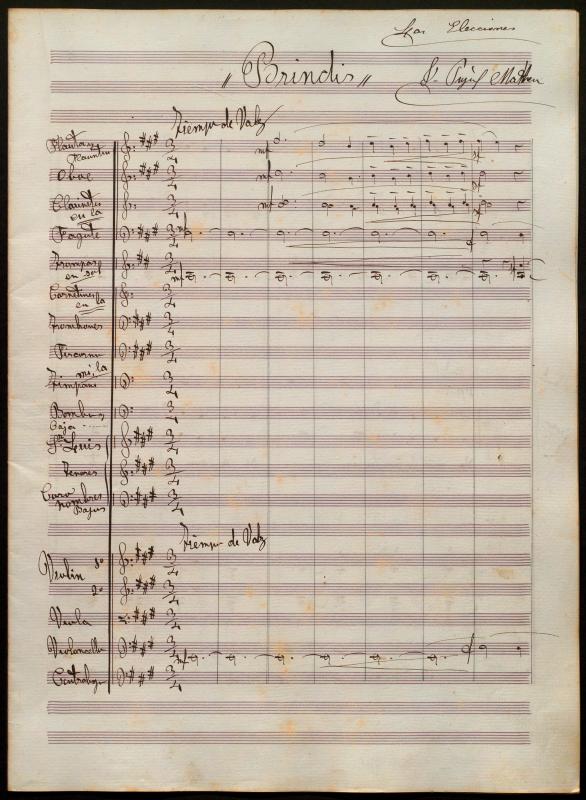 Las Elecciones
"Brindis"
Tiempo de Valz
Flautas y
Flautin
Oboe
Clarinetes
en la
Fagote
mf
mf
mf
mf
Trompas
en sol
mf
Cornetines
en la
Trombones
mi, la
Timpani
Bombo y
Caja
Sr. Luis
Tenores
Coro
hombres
Bajos
Tiempo de Valz
Violin 1º
2º
Viola
Violoncello
mf
Contrabajo